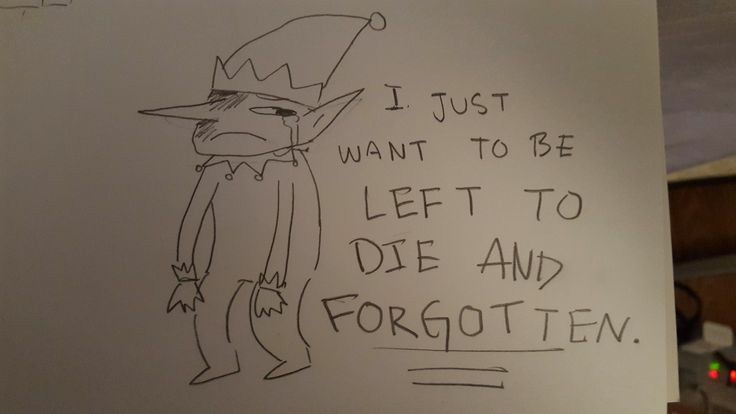 I JUST
WANT TO BE
LEFT TO
DIE AND
FORGOTTEN.